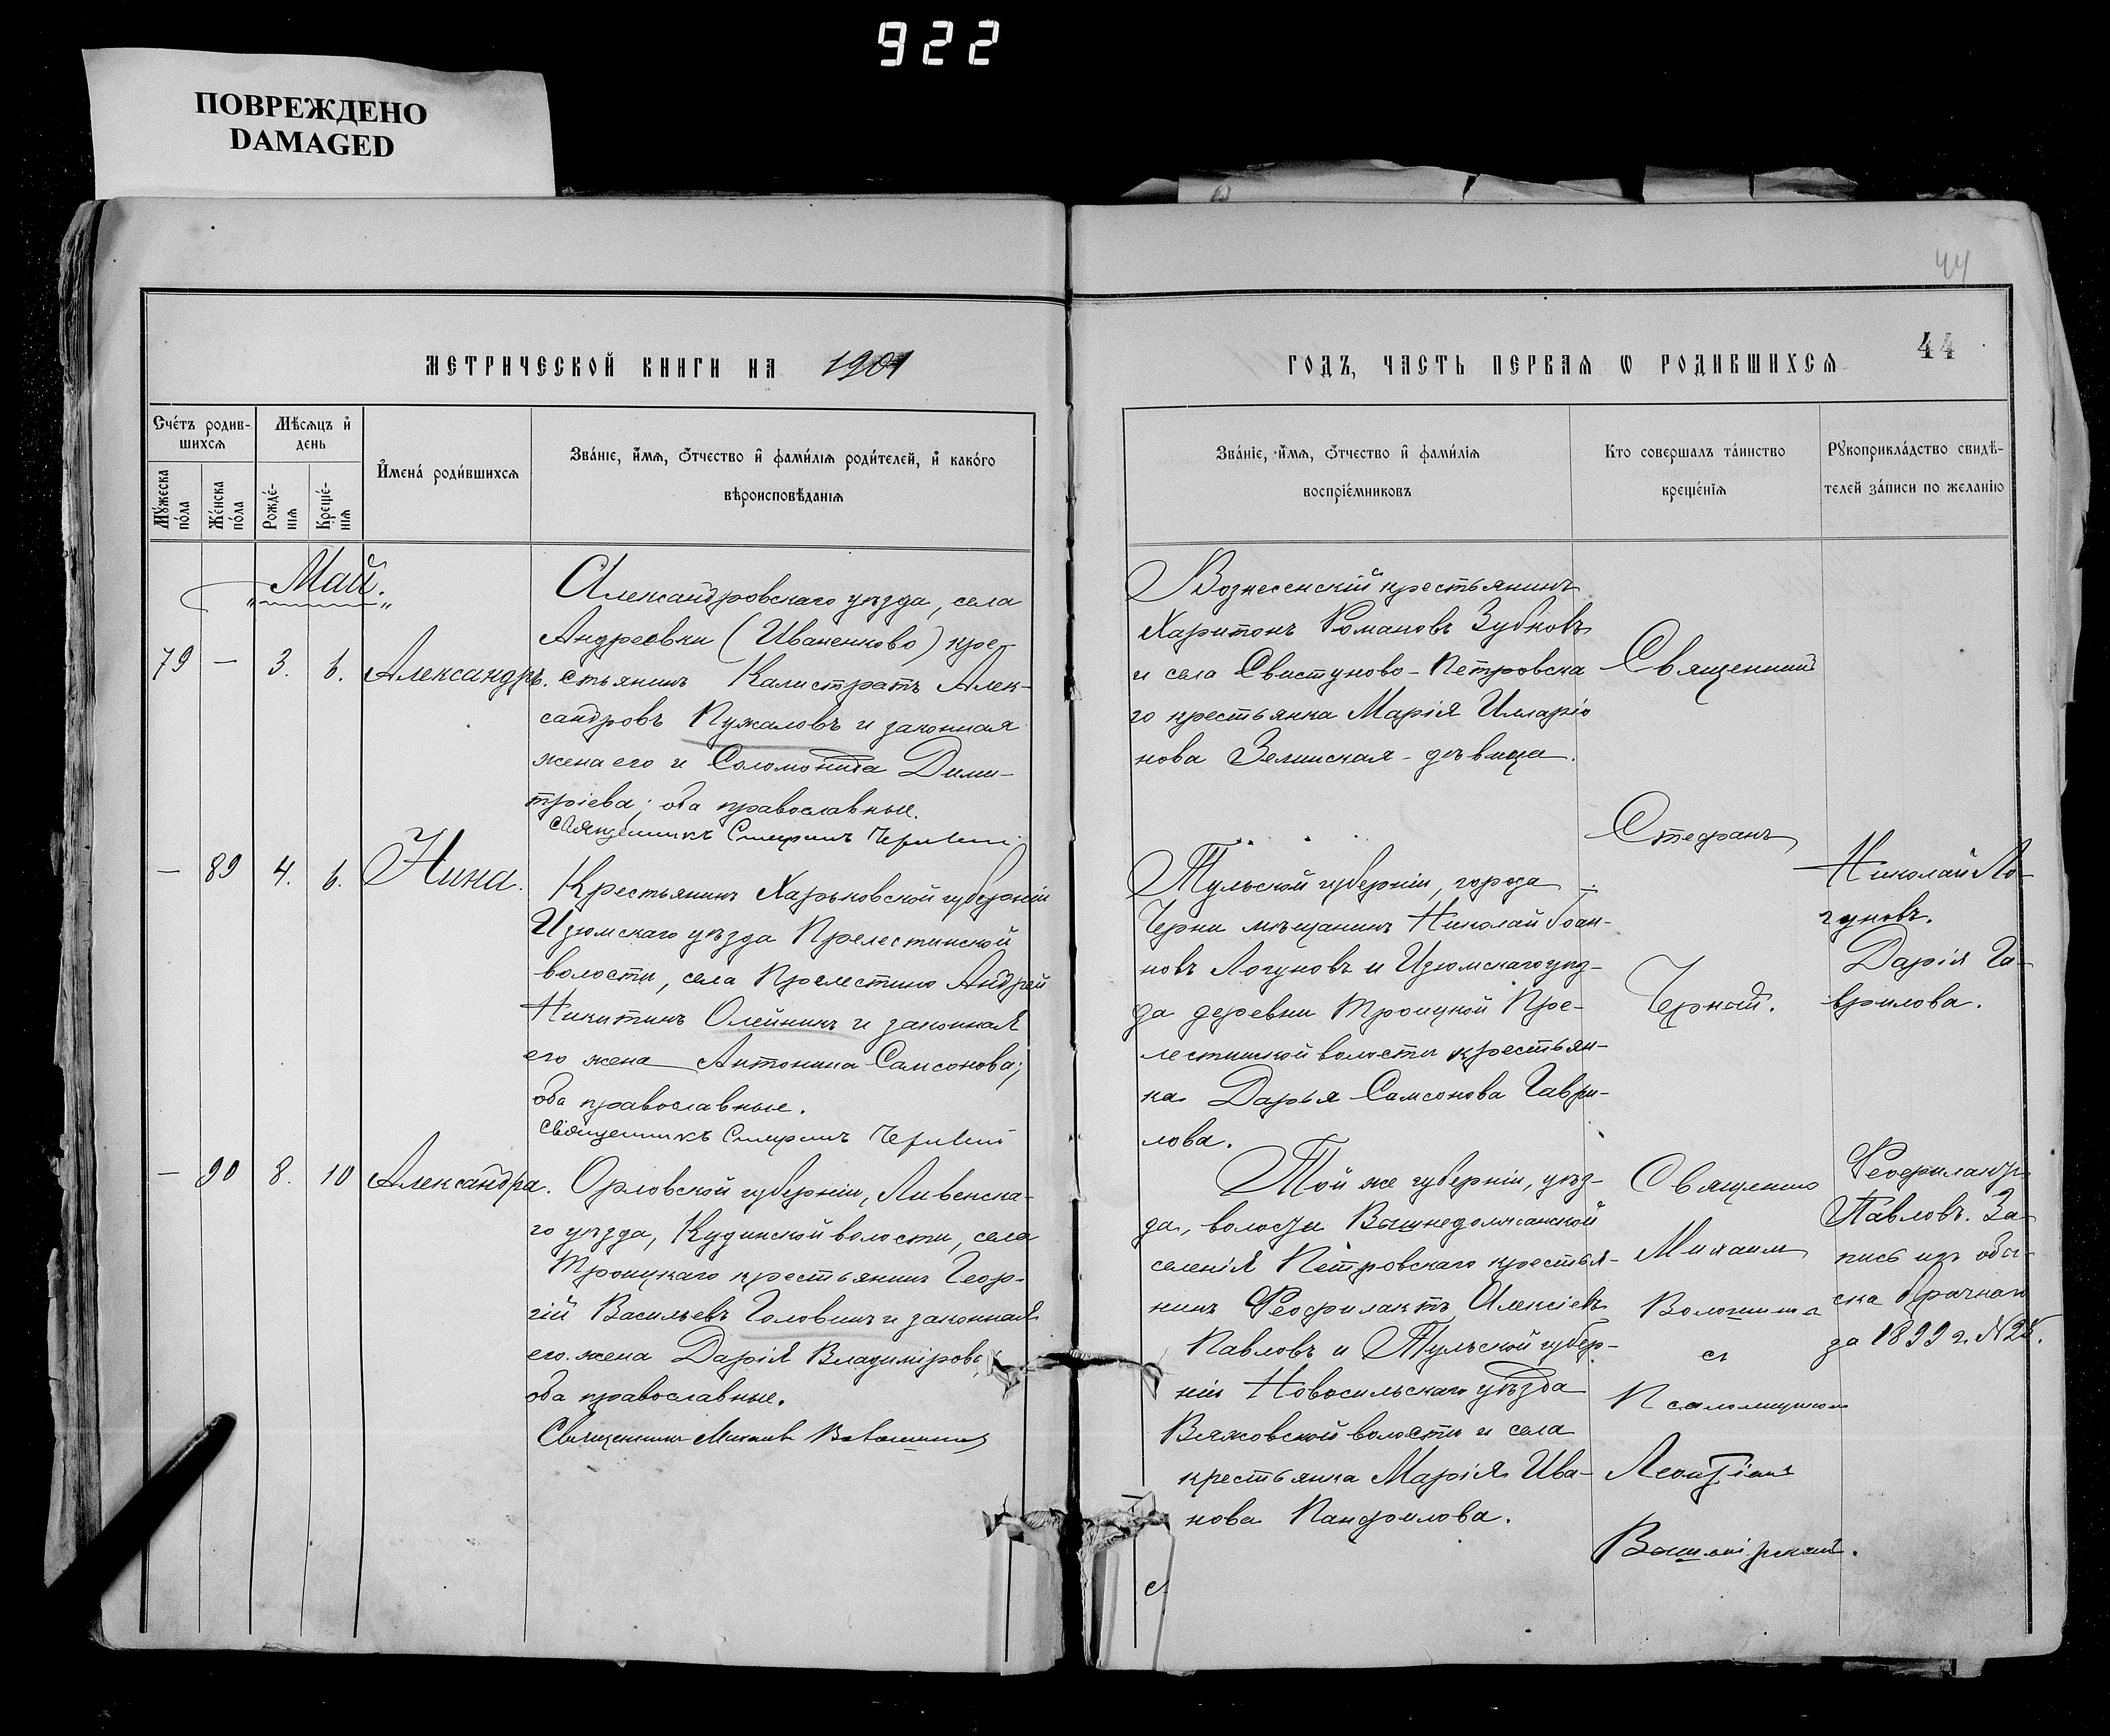 922
ПОВРЕЖДЕНО
DAMAGED
44
44
МЕТРИЧЕСКОЙ КНИГИ НА 1901
ГОДЪ, ЧАСТЬ ПЕРВАѦ Ѡ РОДИВШИХСѦ
Счетъ родив-
шихсѧ
Мѣсѧцъ и
день
Мужеска
пола
Женска
пола
Рожде-
нїѧ
Креще-
нїѧ
Имена родившихсѧ
Званїе, имѧ, ѿчество и фамилїѧ родителей, и какого
вѣроисповѣданїѧ
Званїе, имѧ, ѿчество и фамилїѧ
воспрїемниковъ
Кто совершалъ таинство
крещенїѧ
Рꙋкоприкладство свидѣ-
телей записи по желанїю
Май.
79 — 3. 6. Александръ.
Александровскаго уѣзда, села
Андреевки (Иваненково) кре-
стьянинъ Калистратъ Алек-
сандровъ Пужаловъ и законная
жена его и Соломонида Дими-
тріева; оба православные.
Священникъ
Вознесенскій крестьянинъ
Харитонъ Романовъ Зубковъ
и села Свистуново-Петровска
го крестьянка Марія Илларіо
нова Зелинская - дѣвица.
Священникъ
Стефанъ
Черный.
— 89 4. 6. Нина.
Крестьянинъ Харьковской губерніи
Изюмскаго уѣзда Прелестинской
волости, села Прелестино Андрей
Никитинъ Олейникъ и законная
его жена Антонина Самсонова;
оба православные.
Священникъ
Тульской губерніи, города
Черни мѣщанинъ Николай Іоан-
новъ Логуновъ и Изюмскаго уѣз-
да деревни Троицкой Пре-
лестинской волости крестьян-
ка Дарья Самсонова Гаври-
лова.
Николай Ло-
гуновъ.
Дарія Га-
врилова.
— 90 8. 10 Александра.
Орловской губерніи, Ливенска-
го уѣзда, Кудинской волости, села
Троицкаго крестьянинъ Геор-
гій Васильевъ Головинъ и законная
его жена Дарія Владимірова;
оба православные.
Священникъ Михаилъ
Той же губерніи, уѣз-
да, волости Вышнедолжанской
селенія Петровскаго крестья-
нинъ Феофилактъ Алексіевъ
Павловъ и Тульской губер-
ніи Новосильскаго уѣзда
Вяжовской волости и села
крестьянка Марія Ива-
нова Панфилова.
Священно
Михаилъ
Волошинъ
съ
Псаломщикомъ
Феофилактъ
Павловъ. За-
пись изъ обы-
ска брачнаго
за 1899 г. №